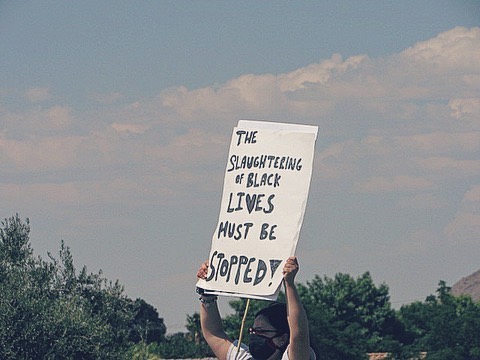 THE
SLAUGHTERING
OF BLACK
LIVES
MUST BE
STOPPED!